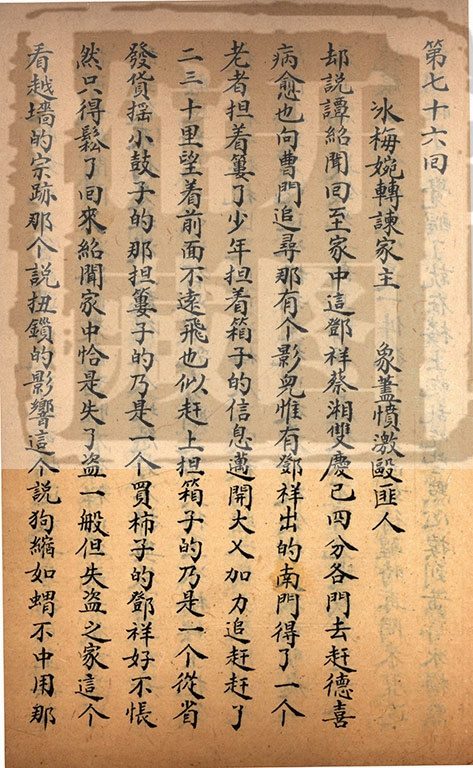 第七十六回
冰梅婉轉諫家主　象藎憤激毆匪人
却說譚紹聞回至家中這鄧祥蔡湘雙慶已四分各門去赶德喜
病愈也向曹門追尋那有个影兒惟有鄧祥出的南門得了一个
老者担着簍了少年担着箱子的信息邁開大乂加力追赶赶了
二三十里望着前面不遠飛也似赶上担箱子的乃是一个從省
發貨摇小鼓子的那担簍子的乃是一个買柿子的鄧祥好不悵
然只得鬆了回來紹聞家中恰是失了盜一般但失盜之家這个
看越墻的宗跡那个說扭鎖的影響這个說狗縮如蝟不中用那